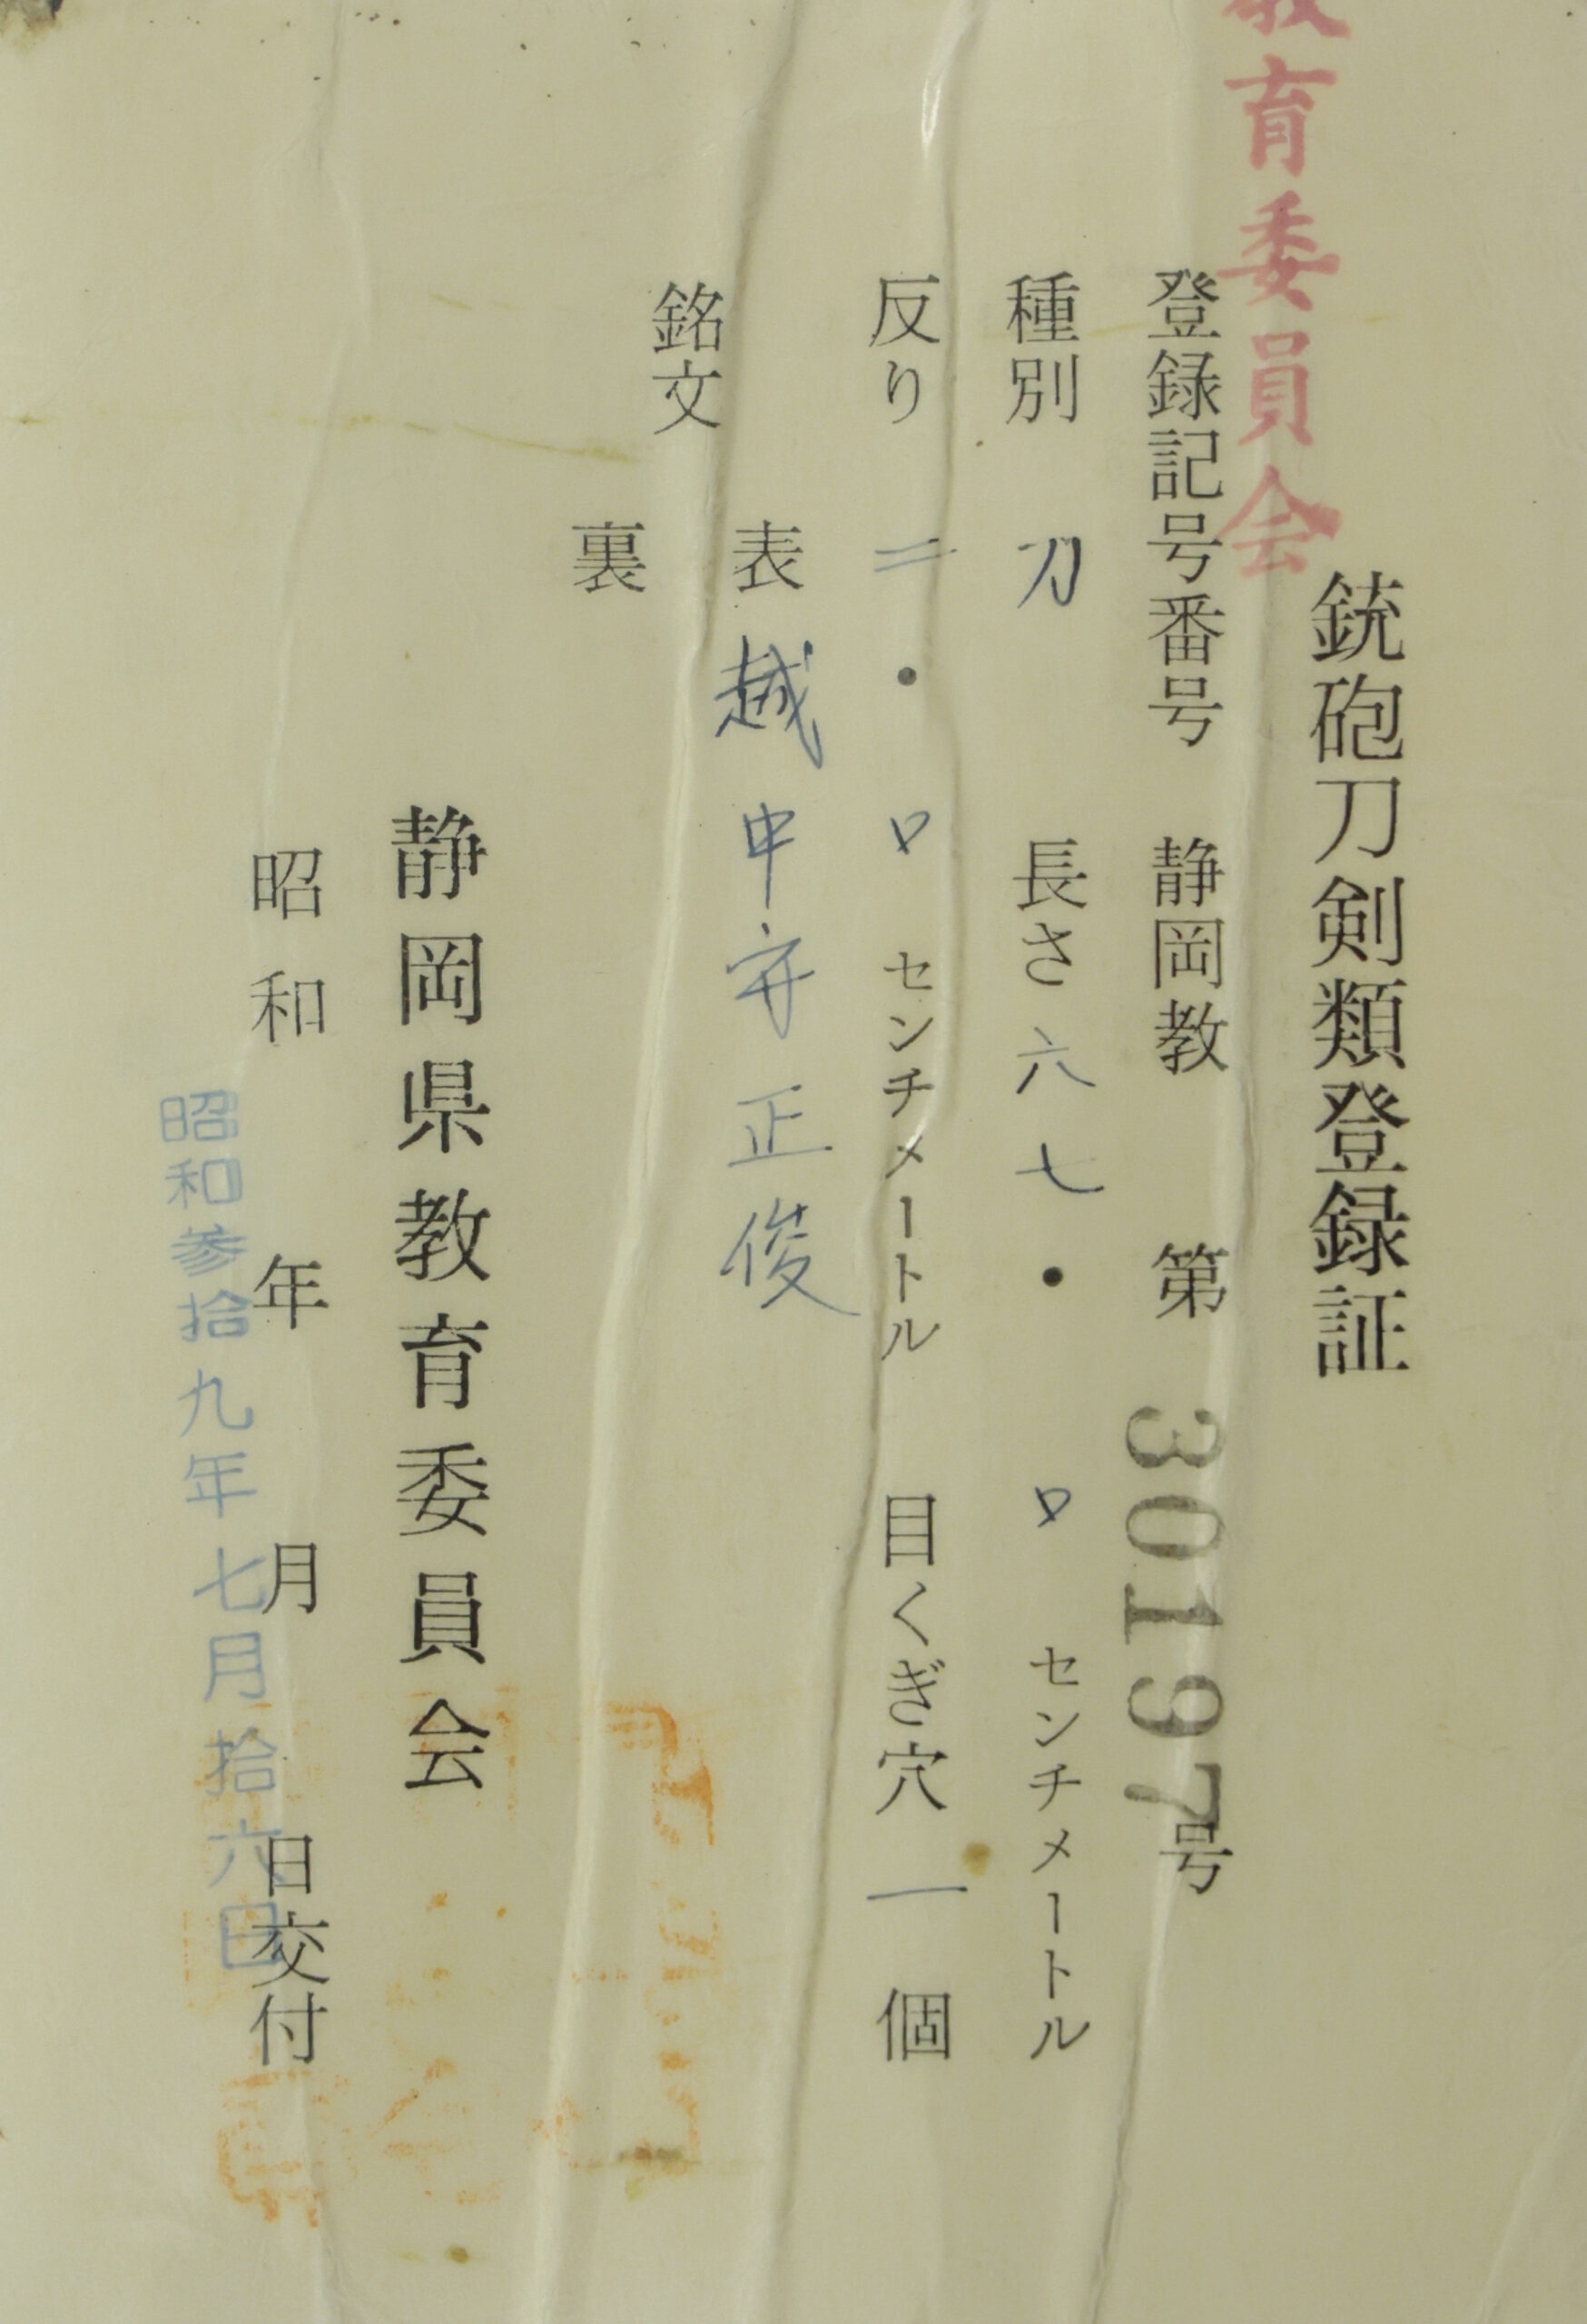 教育委員会
銃砲刀剣類登録証
登録記号番号 静岡教 第 30197号
種別 刀 長さ 六七・〇 センチメートル
反り 二・〇 センチメートル 目くぎ穴 一 個
銘文
表 越中守正俊
裏
静岡県教育委員会
昭和 年 月 日交付
昭和参拾九年七月拾六日